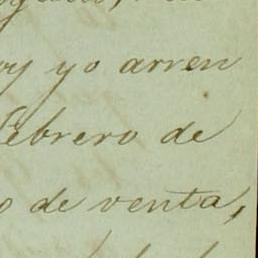 y yo arren
febrero de
o de venta,